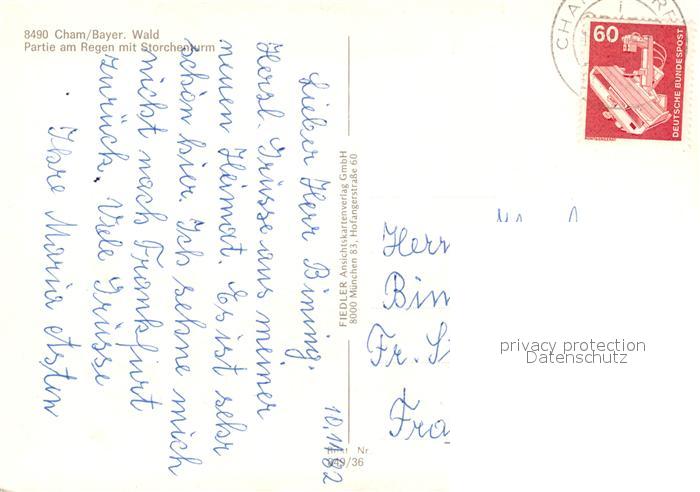 8490 Cham/Bayer. Wald
Partie am Regen mit Storchenturm
Lieber Herr Bining.
Herzl. Grüsse aus meiner
neuen Heimat. Es ist sehr
schön hier. Ich sehne mich
nicht nach Frankfurt
zurück. Viele Grüsse
Ihre Maria Asten
10.11.82
FIEDLER Ansichtskartenverlag GmbH
8000 München 83, Hofangerstraße 60
Nr.
849/36
CHAM
60
DEUTSCHE BUNDESPOST
RÖNTGENGERÄT
Herr
Bin
Fr. S
Fra
privacy protection
Datenschutz